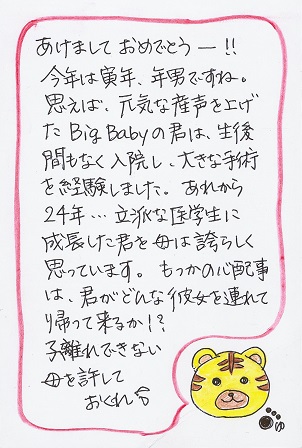 あけまして おめでとう ー!!
今年は寅年、年男ですね。
思えば、元気な産声を上げ
た Big Babyの君は、生後
間もなく入院し、大きな手術
を経験しました。あれから
24年… 立派な医学生に
成長した君を母は誇らしく
思っています。もっかの心配事
は、君がどんな彼女を連れて
帰って来るか!?
子離れできない
母を許して
おくれ
ゆ